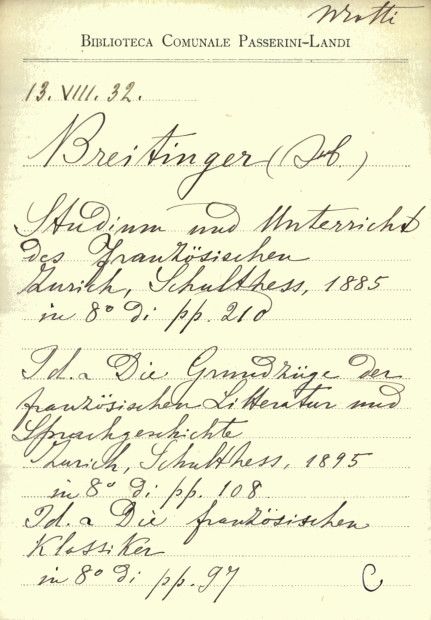 BIBLIOTECA COMUNALE PASSERINI-LANDI
13. VIII. 32.
Breitinger
Studium und Unterricht
des Französischen
Zurich, Schulthess, 1885
in 8° di pp. 210
Id. a Die Grundzüge der
französischen Litteratur und
Sprachgeschichte
Zurich, Schulthess, 1895
in 8° di pp. 108
Id. a Die französischen
Klassiker
in 8° di pp. 97 C